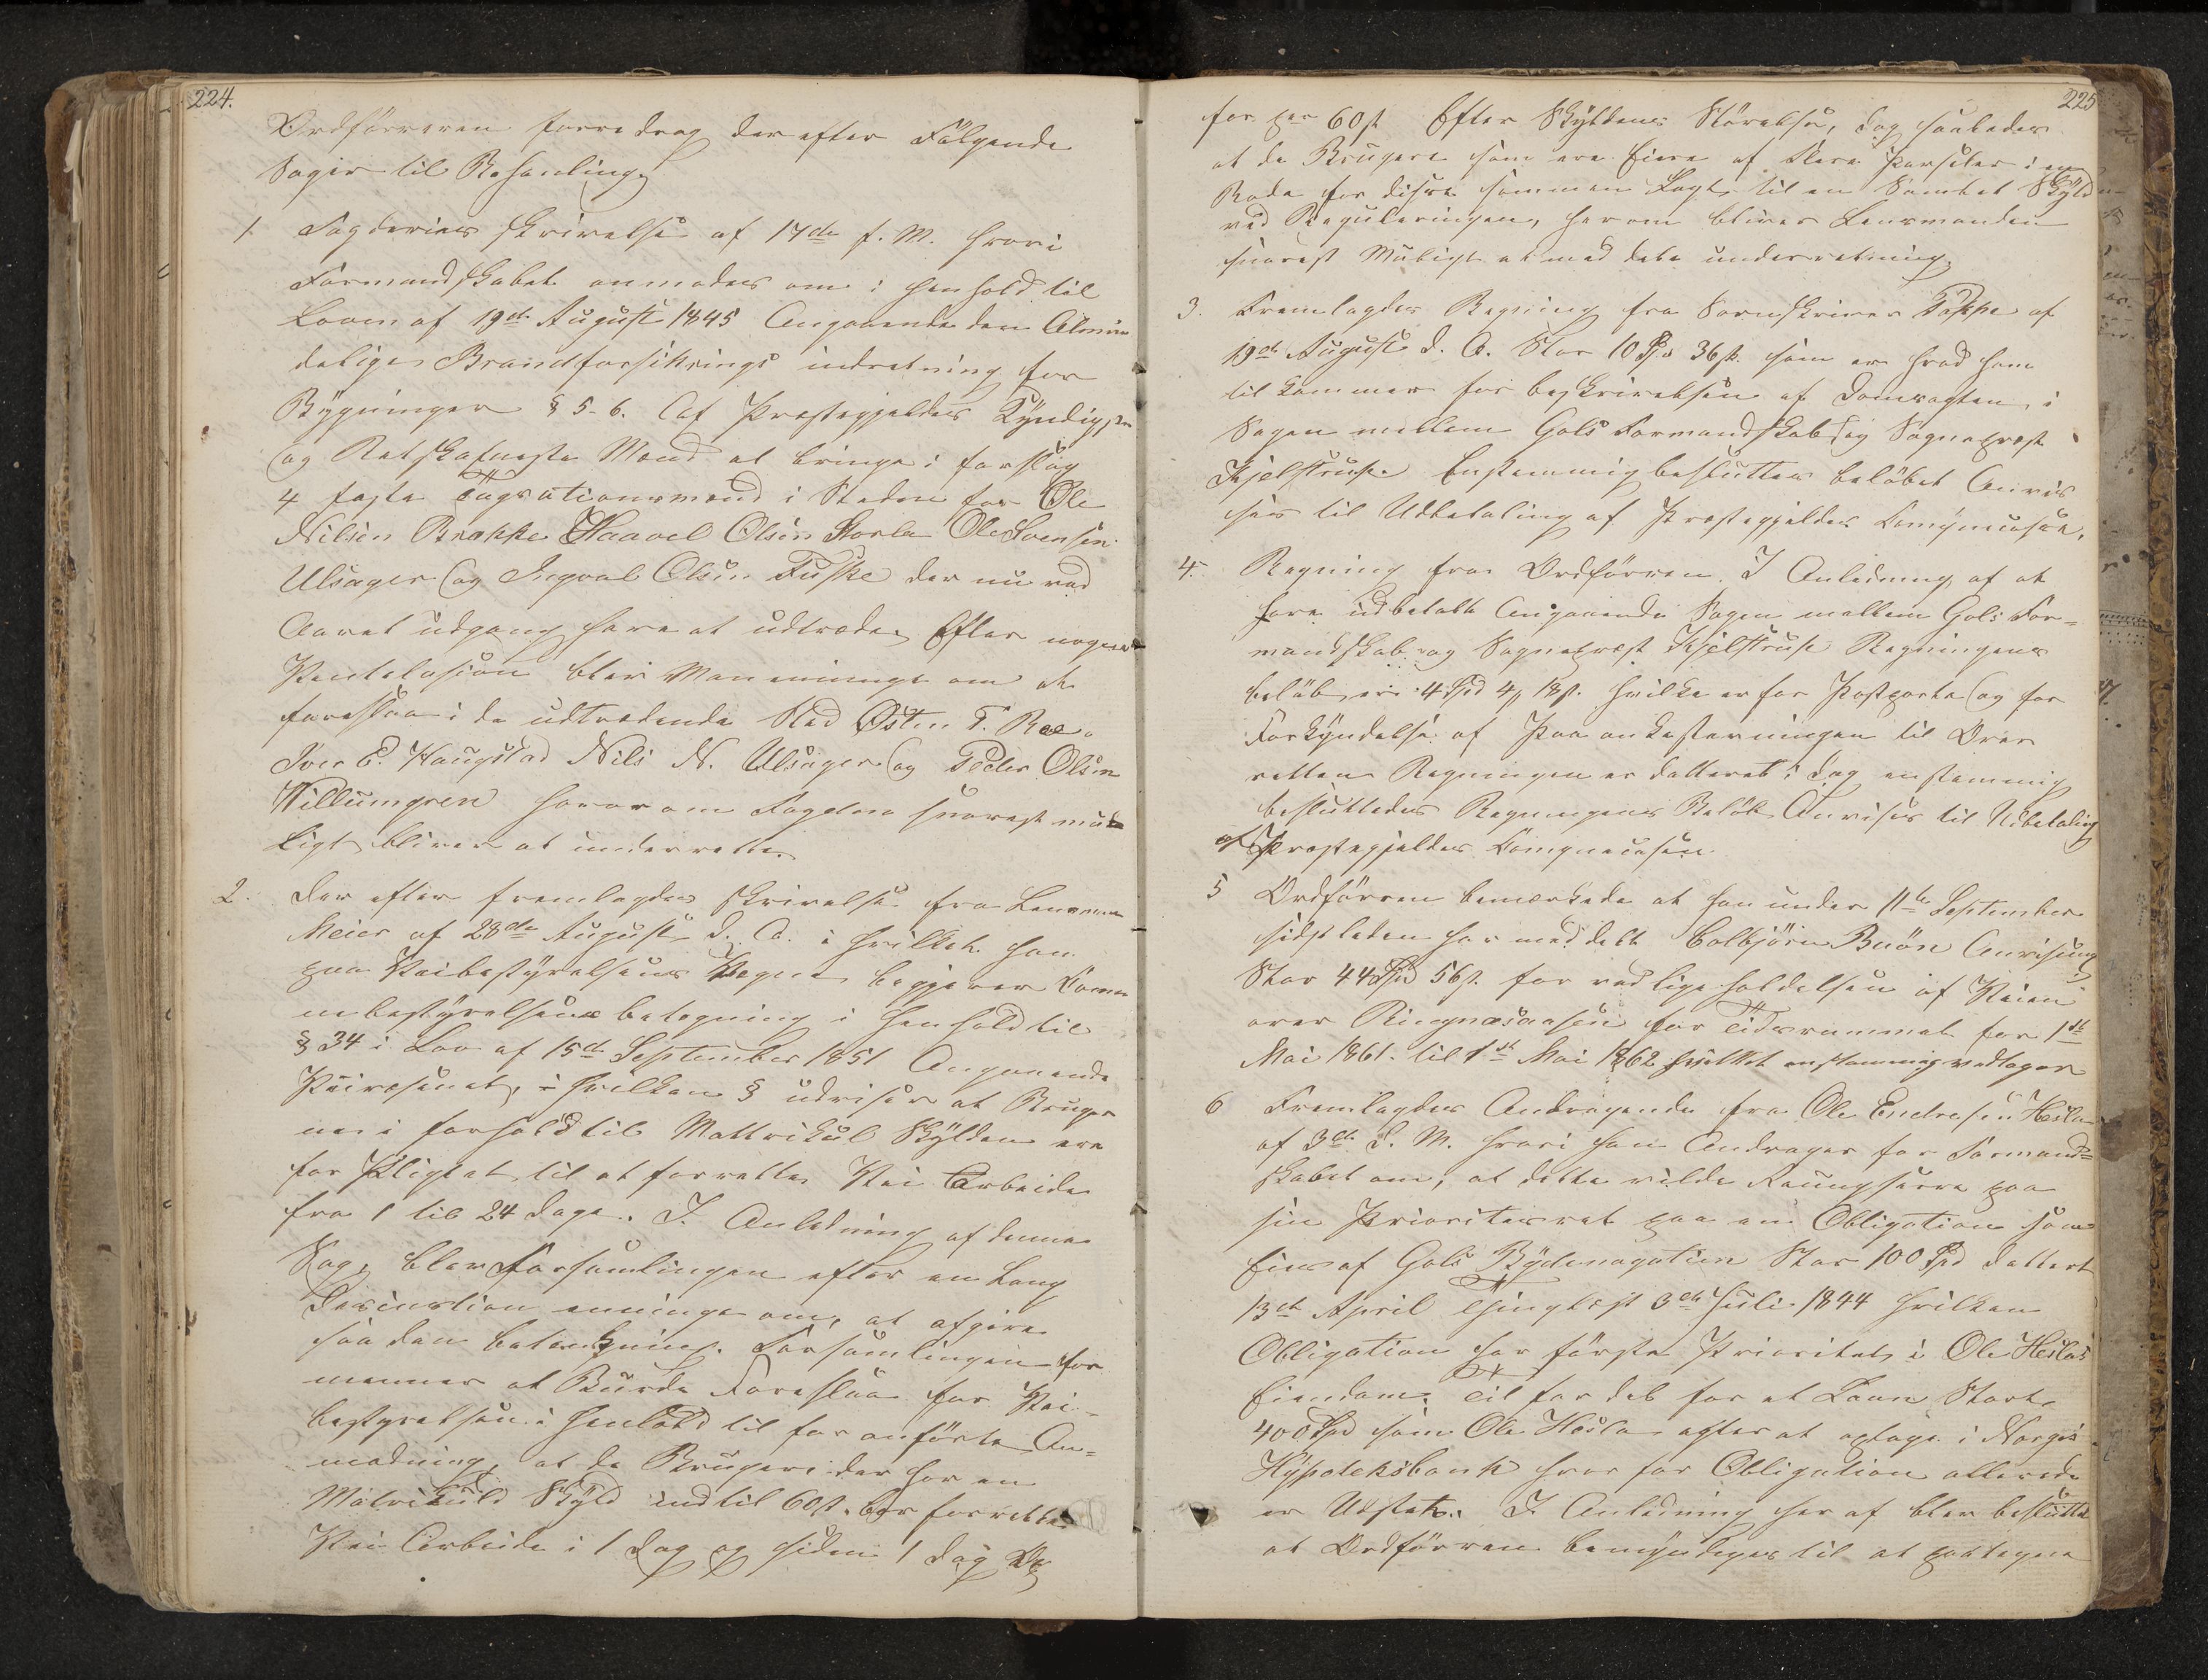 224.
Ordförreren forredrog der efter Fölgende
Sager til Behandling.
1. Fogderiets skrivelse af 17de f. M. hvori
Formandskabet anmodes om i henhold til
Loven af 19de August 1845 Angaaende den Almin
delige Brandforsikrings indretning for
Bÿgninger § 5-6. Af Præstegjeldets Kÿndigste
og Retskafneste Mænd at bringe i forslag
4 faste Tagsationsmænd i Steden for Ole
Nilsen Brekke Haavel Olsen Storla Ole Svensen
Ulsager og Ingval Olsen Tuske der nu ved
Aaret udgang have at udtræde. Efter nogen
Ventelasion blev Man einninge om at
foreslaa i de udtrædende Sted Østen T. Roe.
Iver E. Haugstad Nils N. Ulsager og Peder Olsen
Villumgren hvorom Fogden snarest mu
ligt bliver at underrette.
2. Der efter fremlagdes skrivelse fra Lensmand
Meier af 28de August d. A. i hvilket han
paa Veibestÿrelsens Vegne begjærer Komu
nebestÿrelsens betegning i Henhold til
§ 34 i Lov af 15de September 1851 Angaaende
Veivæsenet, i hvilken § udviser at Bruger
ne i forhold til Mattrikul Skÿlden ere
for Pligtet til at forrette Vei Arbeide
fra 1 til 24 dage. I Anledning af denne
Sag, blev Forsamlingen efter en Lang
Discustion enninge om, at afgive
saadan betenkning. Forsamlingen for
mener at Burde Foreslaa for Vei-
bestyrelsen i Henhold til for anförte An=
modning, at de Brugere der har en
Matrikuld Skÿld indtil 60 s. bør forrette
Vei Arbeide i 1 Dag og siden 1 dag
225
for per 60 s Efter Skÿldens Störrelse, dog saaledes
at de Brugere som ere Eiere af flere Parseler i en
Rode for disse sammen Lagt til en Samlet Skÿld
ved Reguleringen, herom bliver Lensmanden
snarest Muligt at meddele underretning.
3. Fremlagdes Regning fra Sorenskriver af
19de August d. A. Stor 10 Spd 36 s. som er hvad ham
til kommer for beskrivelsen af Domsagten i
Sagen mellem Gols Formandskab og Sogneprest
Kjelstrup. Enstemmig besluttes belöbet Anvis
ses til Udbetaling af Præstegjeldets Komÿnecasse.
4. Regning fra Ordförren. I Anledning af at
have udbetalt Angaaende Sagen mellem Gols For=
mandskab og Sogneprest Kjelstrup Regningens
belöb er 4 Spd 4 18 s. hvilke er for Postporto og for
Forkÿndelse af Paaankesterningen til Over
retten Regningen er datteret i Dag enstemmig
besluttedes Regningens Belöb Anvises til Udbetaling
af Præstegjeldets Komÿnecasse.
5 Ordförren bemerkede at han under 11te September
sidstleden har meddelt Colbjörn Buön Anvisning
Stor 44 Spd 56 s. for vedligeholdelsen af Veien
over Ringnæsaasen for Tidsrummet for 1ste
Mai 1861 til 1ste Mai 1862 hvilket enstemmig vedtoges
6 Fremlagdes Andragende fra Ole Endresen Hesla
af 3de d. M. hvori han Andrager for Formand=
skabet om, at dette vilde paa
sin Prioritetsret paa en Obligation som
Eies af Gols Bÿdemagatien Stor 100 Spd dattert
13de April tinglæst 3de Juli 1844 hvilken
Obligation har förste Prioritet i Ole Heslas
Eiendom. Til fordel for et Laan Stort
400 Spd som Ole Hesla agter at optage i Norges
Hÿpoteksbank hvor for Obligation allerede
er Udstet. I Anledning her af blev besluttet
at Ordförren bemÿndiges til at paategne